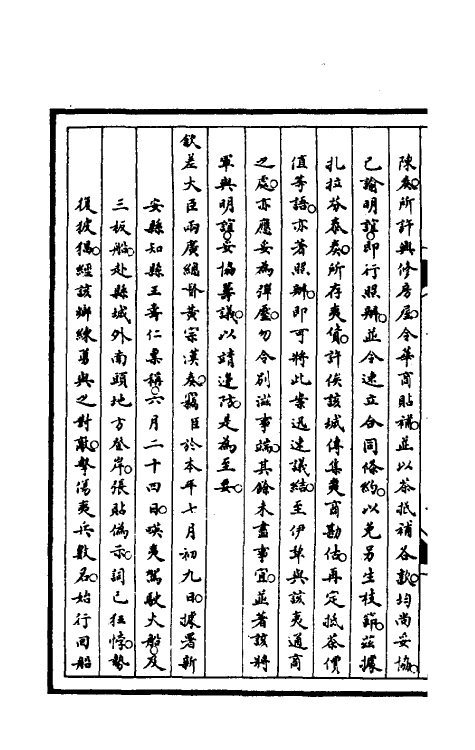 陳奏。所許與修房屋。令華商貼補。並以茶抵補各款。均尚妥協。
已諭明誼。即行照辦。並令速立合同條約。以免另生枝節。茲據
扎拉芬泰奏。所存夷貨。許俟該城傳集夷商勘估。再定抵茶價
值等語。亦著照辦。即可將此案迅速議結。至伊犂與該夷通商
之處。亦應妥為彈壓。勿令別滋事端。其餘未盡事宜。並著該將
軍與明誼。妥協籌議。以靖邊陲。是為至要。
欽差大臣兩廣總督黃宗漢奏。竊臣於本年七月初九日。據署新
安縣知縣王壽仁稟稱。六月二十四日。暎夷駕駛大船。及
三板船。赴縣城外南頭地方登岸。張貼偽示。詞已狂悖。勢
復披猖。經該鄉練勇與之對敵。擊傷夷兵數名。始行回船